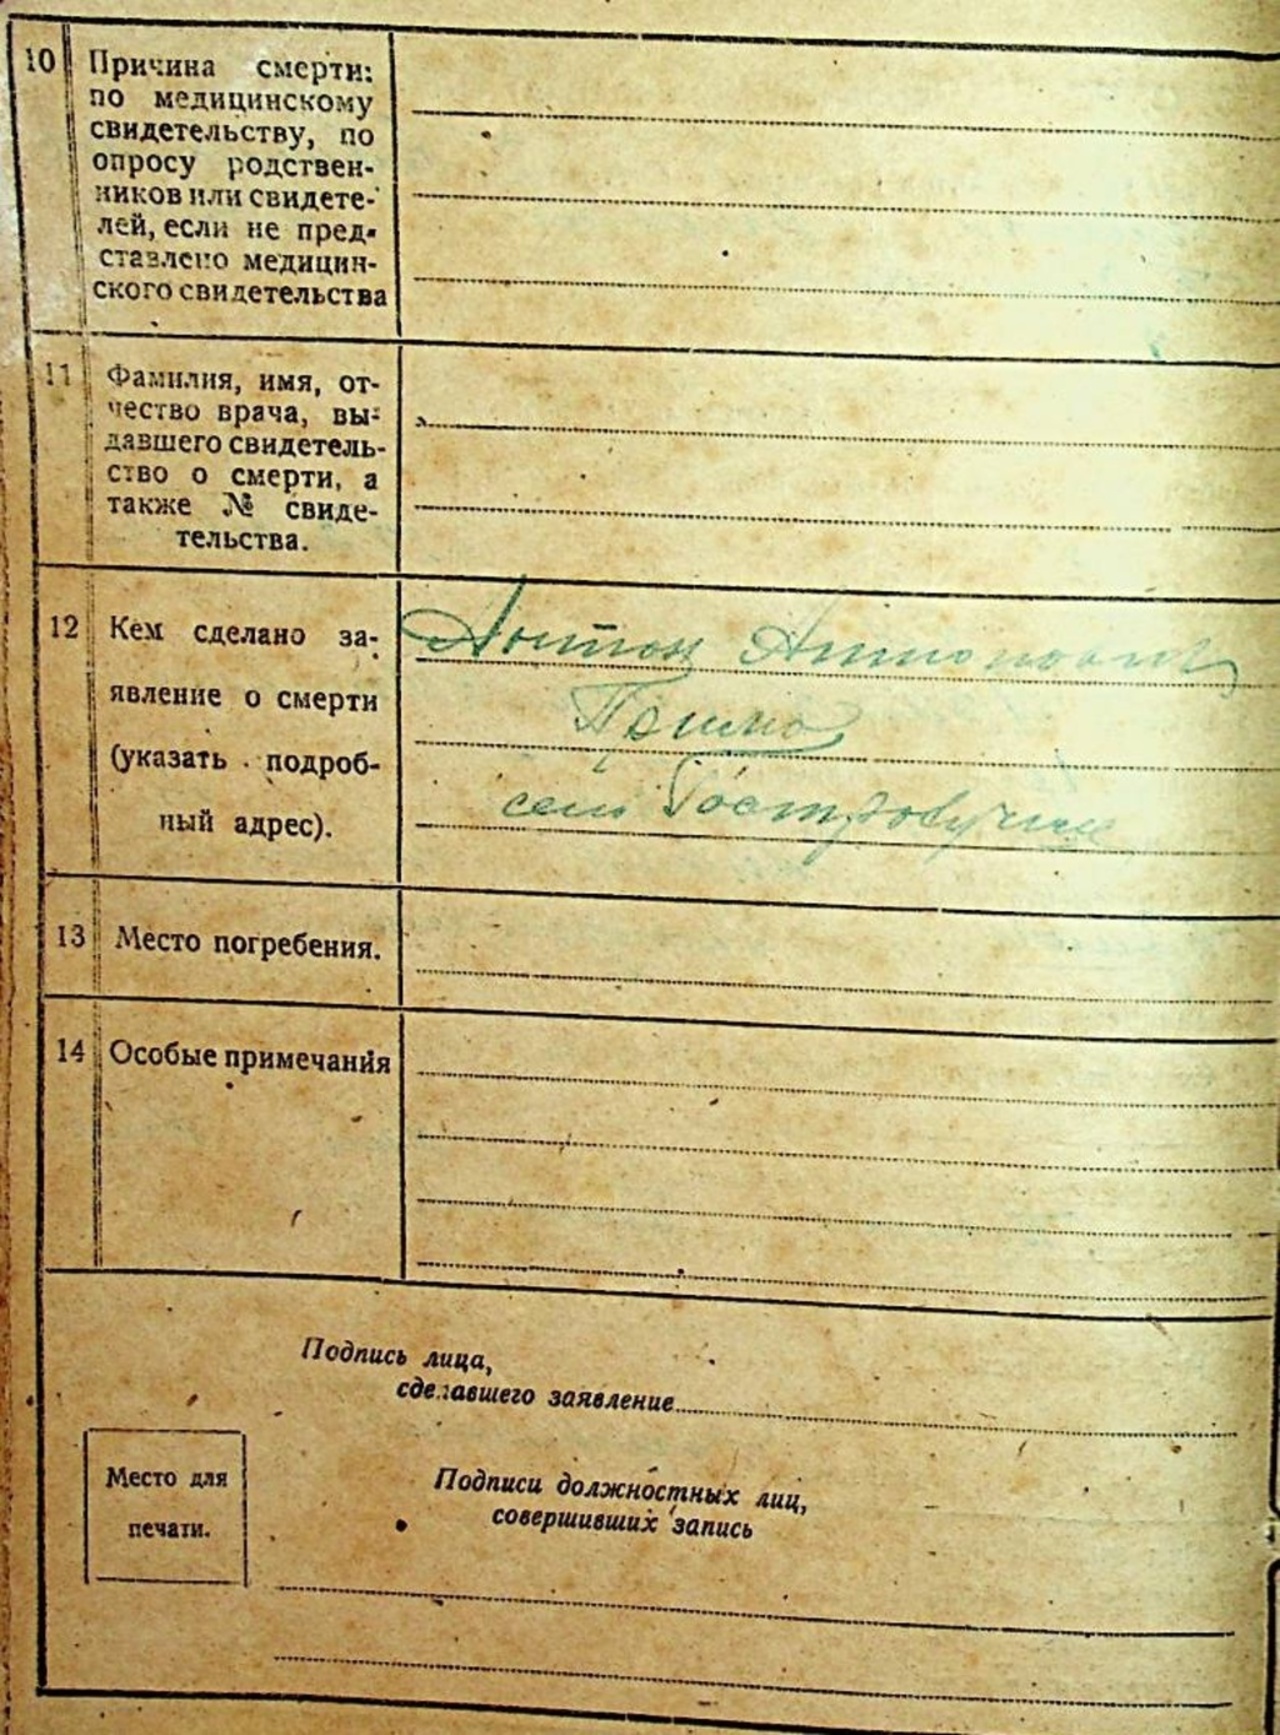 10 Причина смерти:
по медицинскому
свидетельству, по
опросу родствен-
ников или свидете-
лей, если не пред-
ставлено медицин-
ского свидетельства
11 Фамилия, имя, от-
чество врача, вы-
давшего свидетель-
ство о смерти, а
также № свиде-
тельства.
12 Кем сделано за-
явление о смерти
(указать подроб-
ный адрес).
Антон Антонович
13 Место погребения.
14 Особые примечания
Подпись лица,
сделавшего заявление
Место для
печати.
Подписи должностных лиц,
совершивших запись